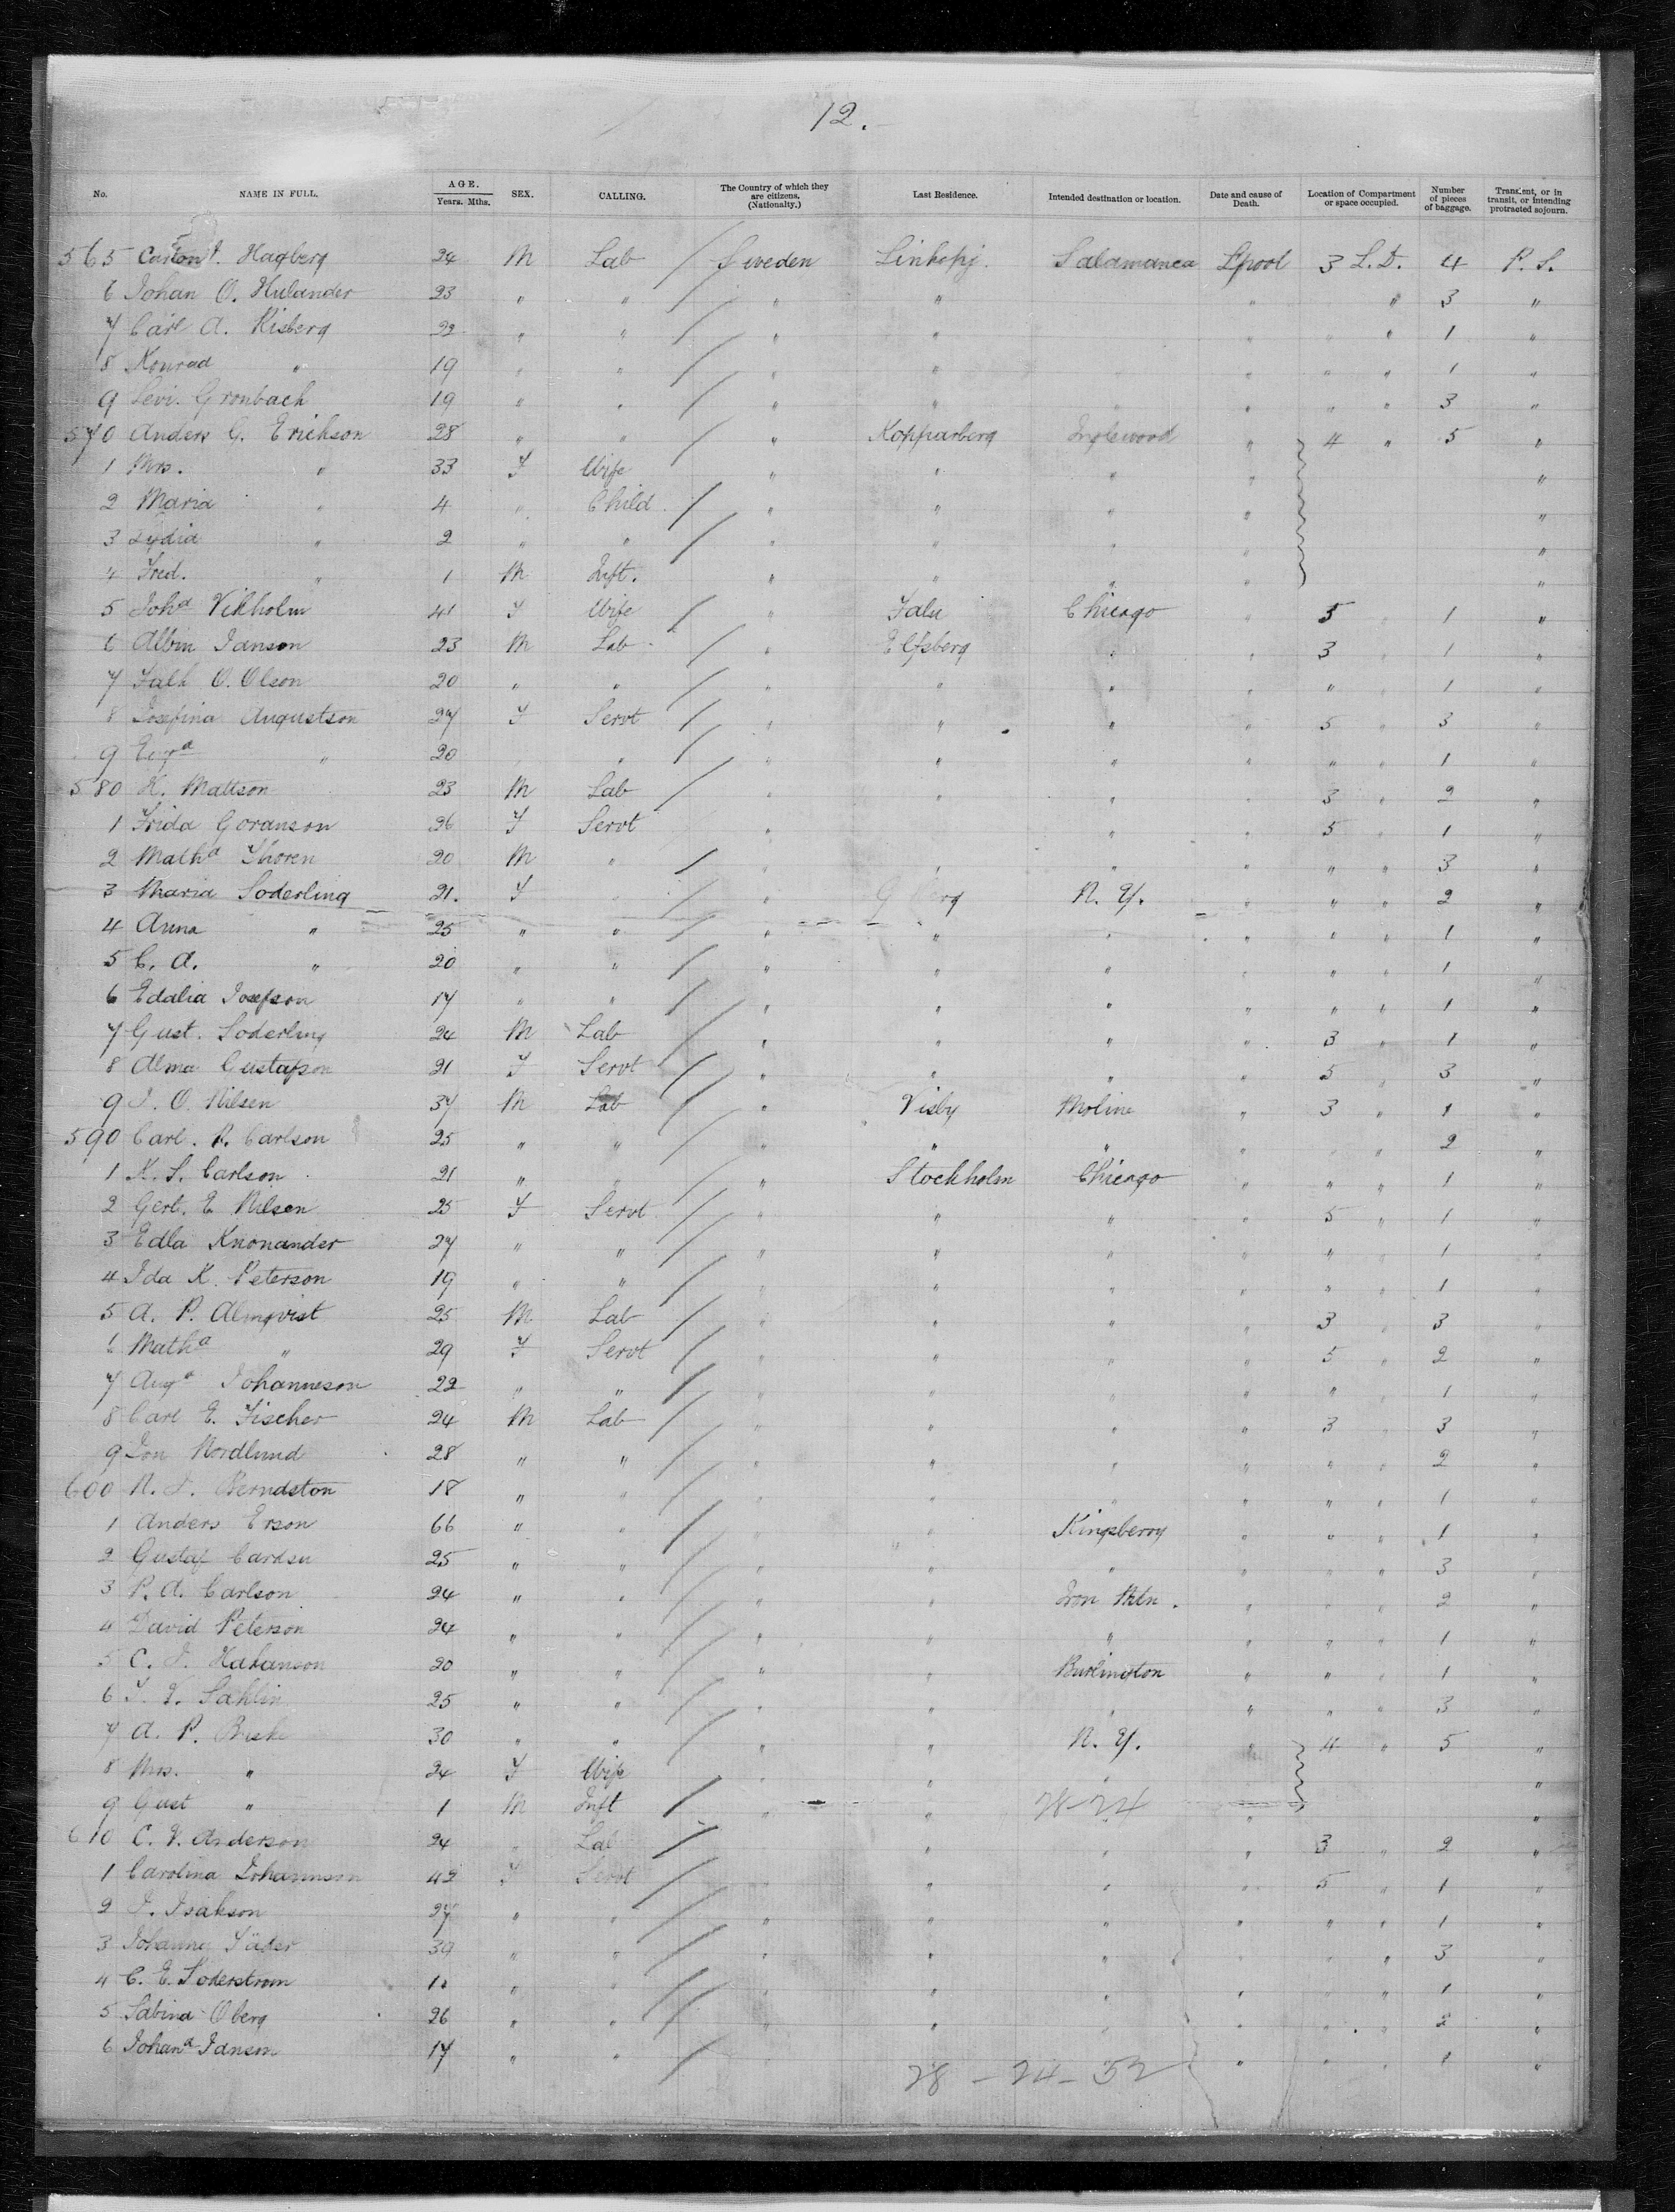 12.
No. NAME IN FULL. AGE. Years. Mths. SEX. CALLING. The Country of which they are citizens. (Nationalty.) Last Residence. Intended destination or location. Date and cause of Death. Location of Compartment or space occupied. Number of pieces of baggage. Transient, or in transit, or intending protracted sojourn.
565 Hagberg 24 M Lab / Sweden Linkopj. Salamanca Lpool 3 L.D. 4 P.S.
6 Johan O. Hulander 23 " " / " " " " 3 "
7 Carl A. Risberg 22 " " / " " " " " 1 "
8 Konrad " 19 " " / " " " " " 1 "
9 Levi. Gronbach 19 " " / " " " " " 3 "
570 Anders G. Erickson 28 " " / " Kopparberg Inglewood " 4 " 5 "
1 Mrs. " 33 F Wife " " " " "
2 Maria " 4 " Child / " " " " "
3 Lydia " 2 " " / " " " " "
4 Fred. " 1 M Inft. " " " " "
5 Joha Vikholm 41 F Wife / " Falu Chicago " 5 " 1 "
6 Albin Janson 23 M Lab / " Elfsberg " " 3 " 1 "
7 Falk O. Olson 20 " " / " " " " " " 1 "
8 Josefina Augustson 27 F Servt / " " " " 5 " 3 "
9 " 20 " / " " " " " " 1 "
580 K. Mattson 23 M Lab / " " " " 3 " 2 "
1 Frida Goranson 26 F Servt " " " 5 " 1 "
2 Matha Thoren 20 M " / " " " " " " 3 "
3 Maria Soderling 21. F " / " N. Y. " " " 2 "
4 Anna " 25 " " / " " " " " " 1 "
5 C. A. " 20 " " / " " " " " " 1 "
6 Edalia Josefson 17 " " / " " " " " " 1 "
7 Gust. Soderling 24 M Lab / " " " " 3 " 1 "
8 Alma Gustafson 21 F Servt / " " " " 5 " 3 "
9 J. O. Nilsen 37 M Lab / " Visby Moline " 3 " 1 "
590 Carl. P. Carlson 25 " " / " " " " " 2 "
1 K. S. Carlson 21 " " / " Stockholm Chicago " " " 1 "
2 Gert. E Nilsen 25 F Servt / " " " " 5 " 1 "
3 Edla Knonander 27 " " / " " " " " " 1 "
4 Ida K. Peterson 19 " " / " " " " " " 1 "
5 A. P. Almqvist 25 M Lab / " " " " 3 " 3 "
6 Matha " 29 F Servt / " " " " 5 " 2 "
7 Auga Johanneson 22 " " / " " " " " " 1 "
8 Carl E. Fischer 24 M Lab / " " " " 3 " 3 "
9 Jon Nordlund 28 " " / " " " " " " 2 "
600 Berndston 18 " " / " " " " " " 1 "
1 Anders Erson 66 " " / " " Kingsberry " " " 1 "
2 Gustaf 25 " " / " " " " " " 3 "
3 P. A. Carlson 24 " " / " " Iron Mtn. " " " 2 "
4 David Peterson 24 " " / " " " " " " 1 "
5 20 " " / " " Burlington " " " 1 "
6 Sahlin 25 " " / " " " " " " 3 "
7 A. P. 30 " " / " " N. Y. " 4 " 5 "
8 Mrs. " 24 F Wife " " " "
9 Gust " 1 M Inft / " " 28-24 " "
610 C. V. Anderson 24 " Lab / " " " 3 " 2 "
1 Carolina 42 F Servt / " " " " 5 " 1 "
2 J. Isakson 27 " " / " " " " " " 1 "
3 Johanna 39 " " / " " " " " " 3 "
4 C. E. Soderstrom " " / " " " " " " 1 "
5 Sabina Oberg 26 " " / " " " " " " 2 "
6 Johana Janson 17 " " / " " " 1 "
28 - 24 - 52